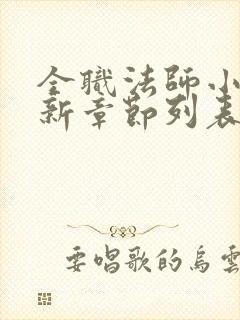 全職法師小
新章節列表
要唱歌的烏雲